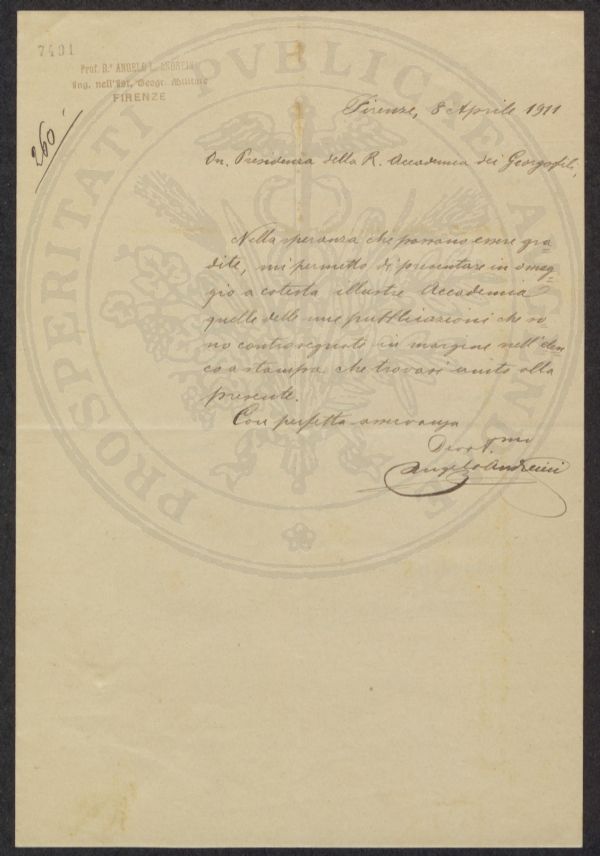 7491
Prof. D.r ANGELO L. ANDREINI
Ing. nell'Ist. Geogr. Militare
FIRENZE
260
Firenze, 8 Aprile 1911
On. Presidenza della R. Accademia dei Georgofili,
Nella speranza che possano essere gra=
dite, mi permetto di presentare in omag=
gio a cotesta illustre Accademia
quelle delle mie pubblicazioni che so
no controsegnate in margine nell'elen
co a stampa che trovasi unito alla
presente.
Con perfetta osservanza
Devot.mo
Angelo Andreini
PROSPERITATI PVBLICAE AVGENDAE